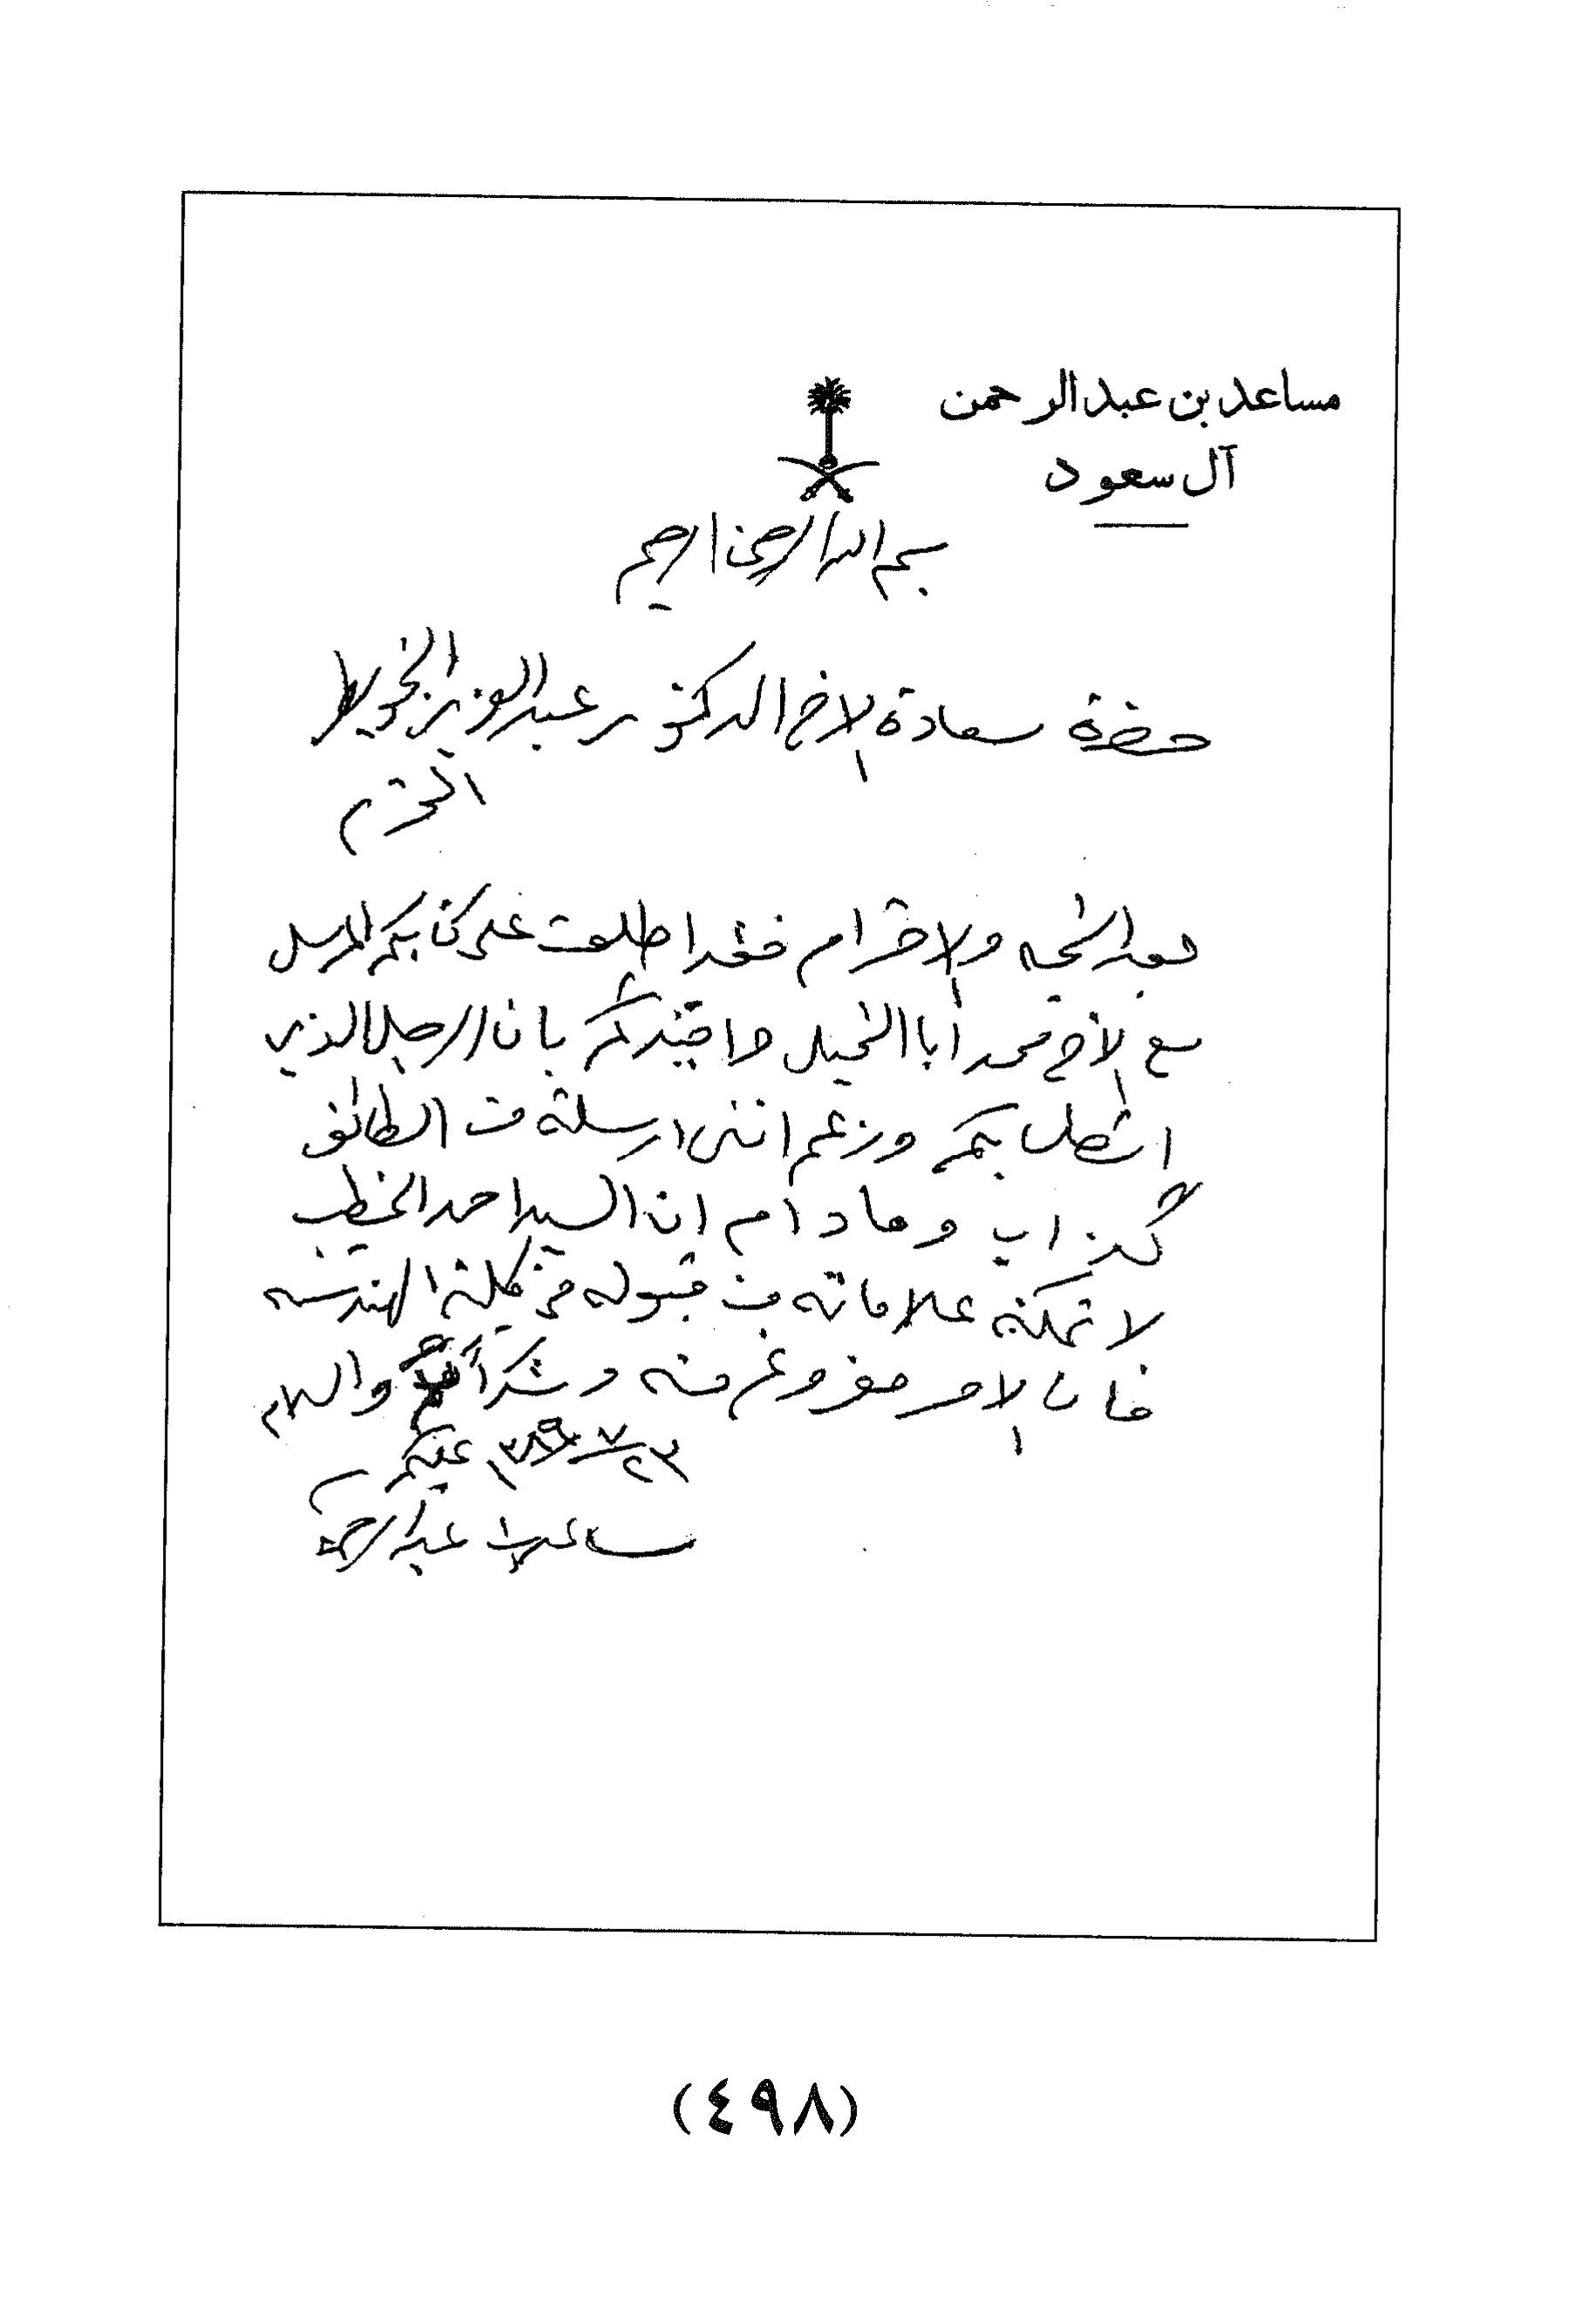 مساعد بن عبدالرحمن
آل سعود
بسم الله الرحمن الرحيم
حضرة سعادة الاخ الدكتور عبدالعزيز الخويطر
المحترم
بعد التحيه والاحترام فقد اطلعت على كتابكم المرسل
مع الاخ محمد ابا الخيل وافيدكم بان الرجل الذي
اتصل بكم وزعم انني ارسلته من الطائف
كذاب وما دام ان السيد احمد الخطيب
لا تمكنه علاماته من قبوله في كلية الهندسه
فان الامر مفروغ منه وشكراً لكم والسلام
عليكم ٢٣/٧/١٣٨٩
مساعد بن عبدالرحمن
(٤٩٨)